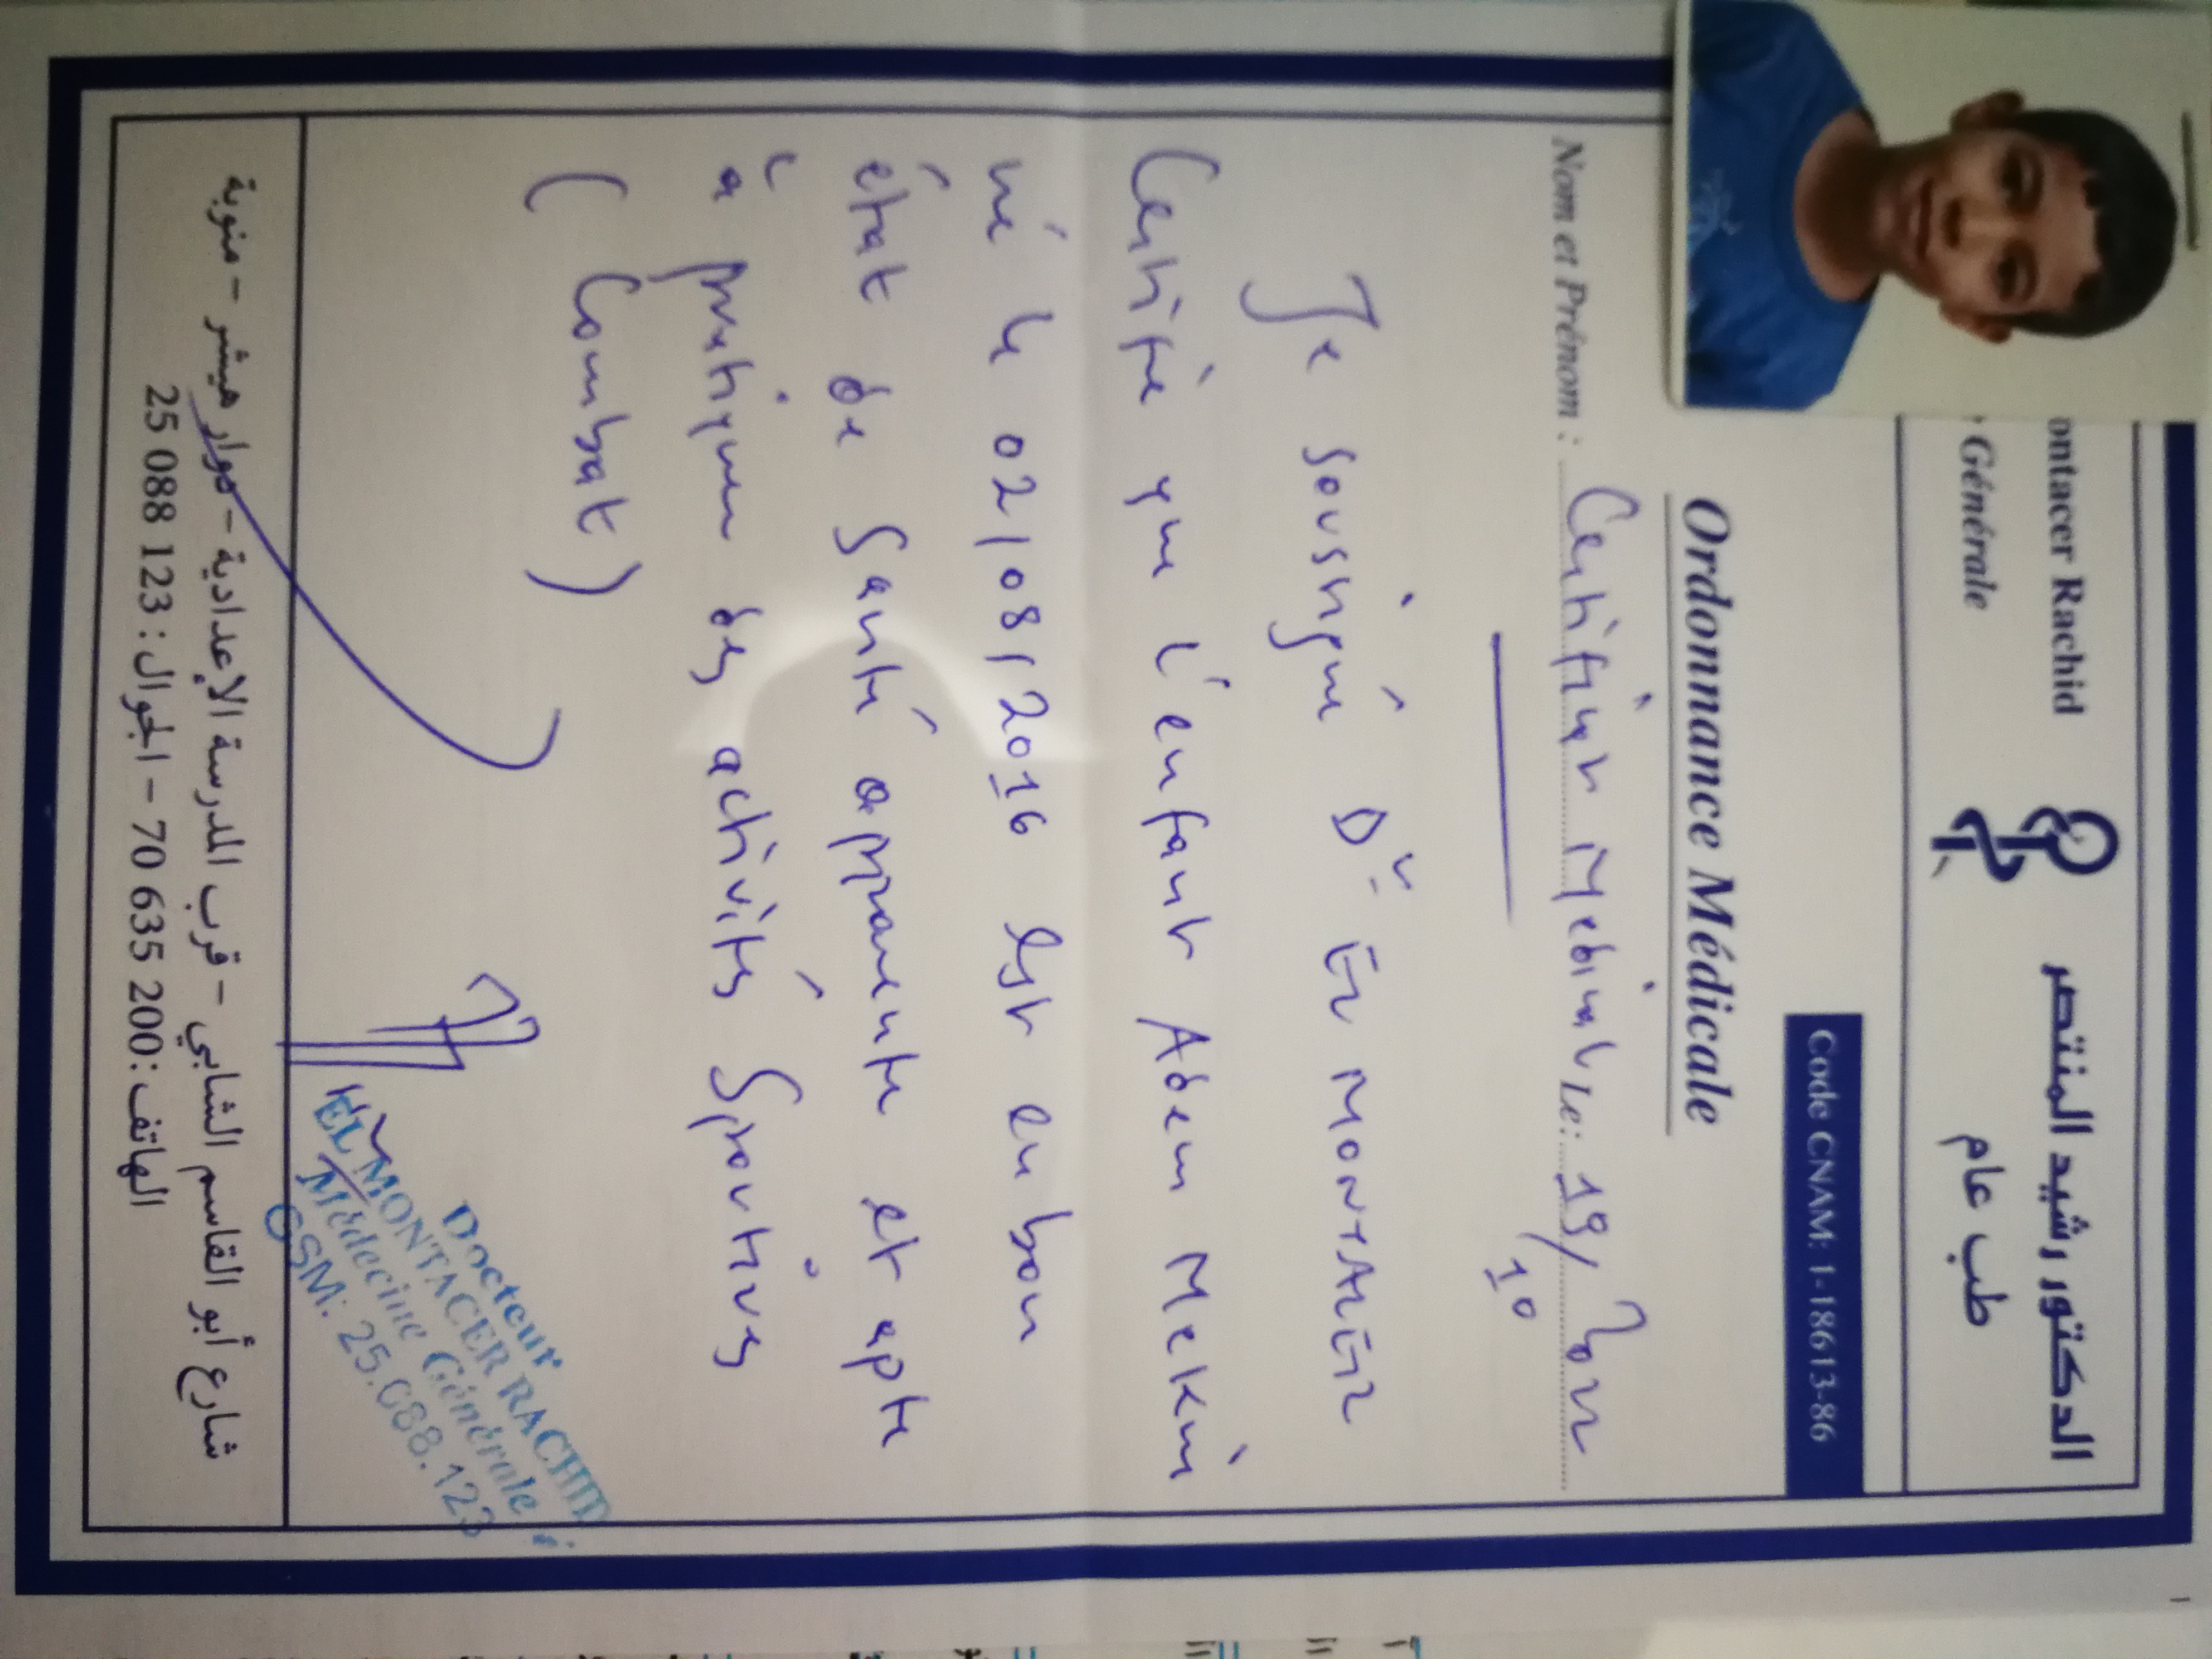 ontacer Rachid
Générale
الدكتور رشيد المنتصر
طب عام
Code CNAM: 1-18613-86
Ordonnance Médicale
Nom et Prénom : Certificat Medical Le: 19/10
Je soussigné Dr El MONTACER
Certifie que l'enfant Adem Mekni
né le 02/08/2016 est en bon
état de Santé apparente et apte
à pratiquer des activités Sportives
( Combat )
Docteur
EL MONTACER RACHID
Médecine Générale
GSM: 25.088.123
شارع أبو القاسم الشابي - قرب المدرسة الإعدادية - دوار هيشر - منوبة
الهاتف: 70 635 200 - الجوال: 25 088 123